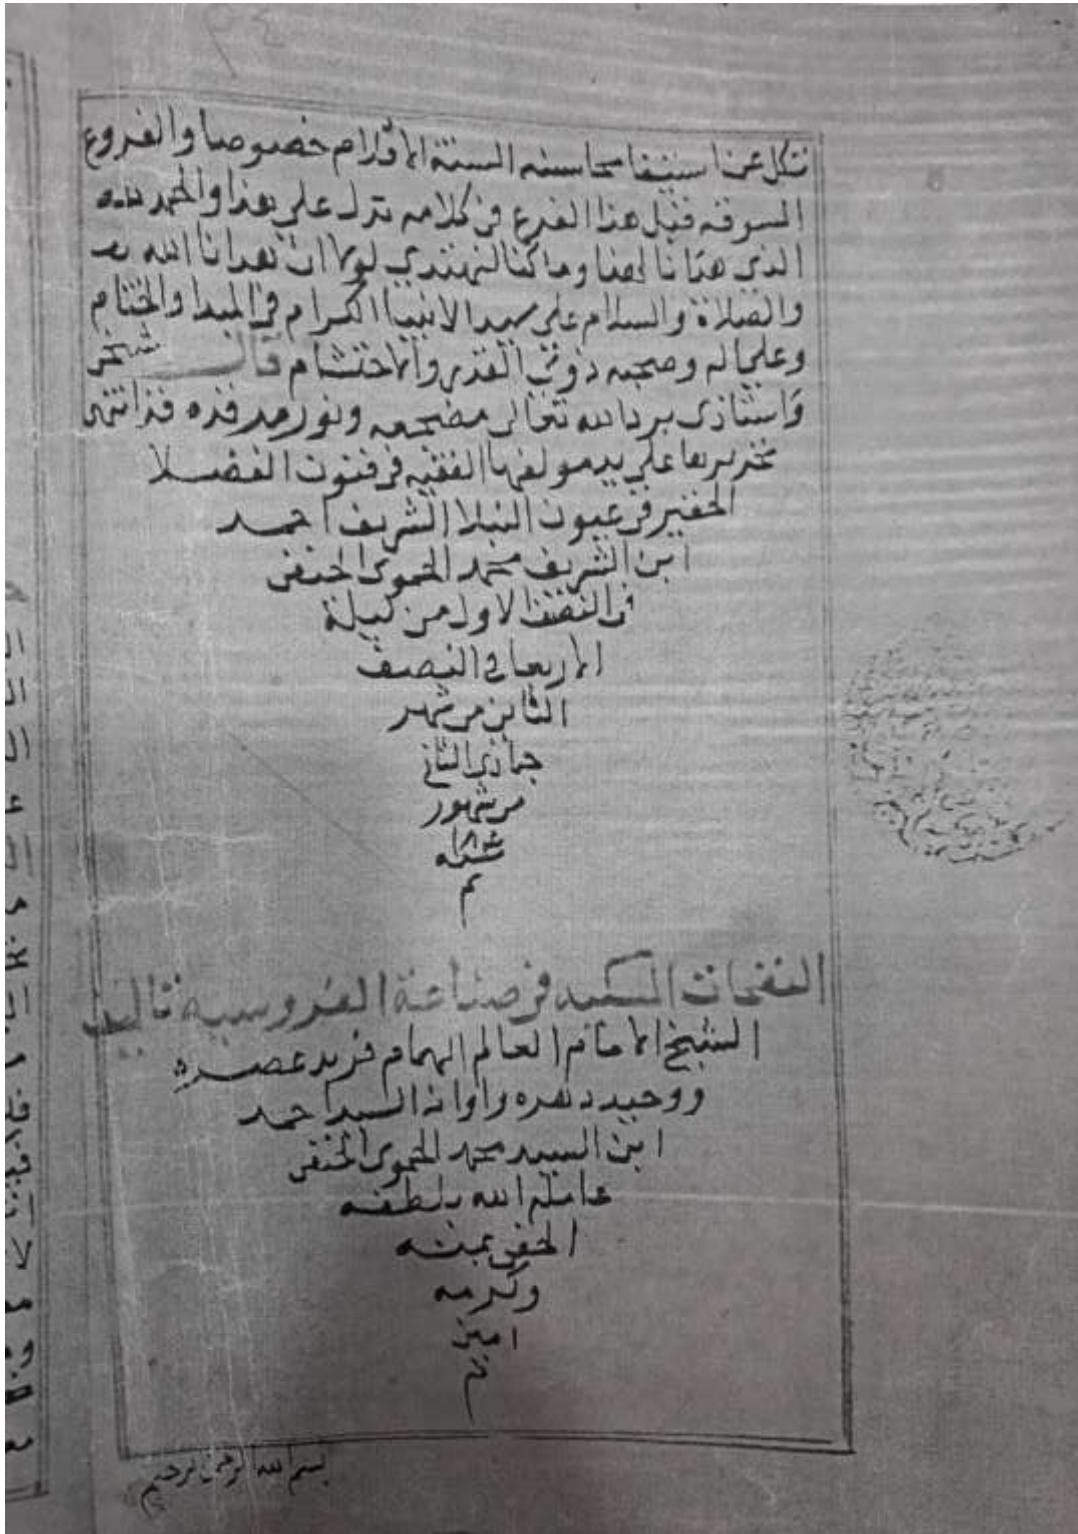 تتكل عن استيفا محاسنه السنة الاقلام خصوصا والفروع
المسوقه قبل هذا الفرع في كلامه تدل على هذا والحمد لله
الذي هدانا لهذا وما كنا لنهتدي لولا ان هدانا الله
والصلاة والسلام على سيد الانبيا الكرام في المبدا والختام
وعلى اله وصحبه ذوي القدر والاحتشام قال شيخى
واستاذى برد الله تعالى مضجعه ونور مرقده قد انتهى
تحريرها على يد مولفها الفقيه في فنون الفضلا
الحقير في عيون النبلا الشريف احمد
ابن الشريف محمد الحموى الحنفى
في النصف الاول من ليلة
الاربعا في النصف
الثاني من شهر
جمادى الثاني
من شهور
سنه
م
النفحات المسكيه في صناعة الفروسيه تاليف
الشيخ الامام العالم الهمام فريد عصره
ووحيد دهره واوانه السيد احمد
ابن السيد محمد الحموى الحنفى
عامله الله بلطفه
الخفى بمنه
وكرمه
امين
م
بسم الله الرحمن الرحيم